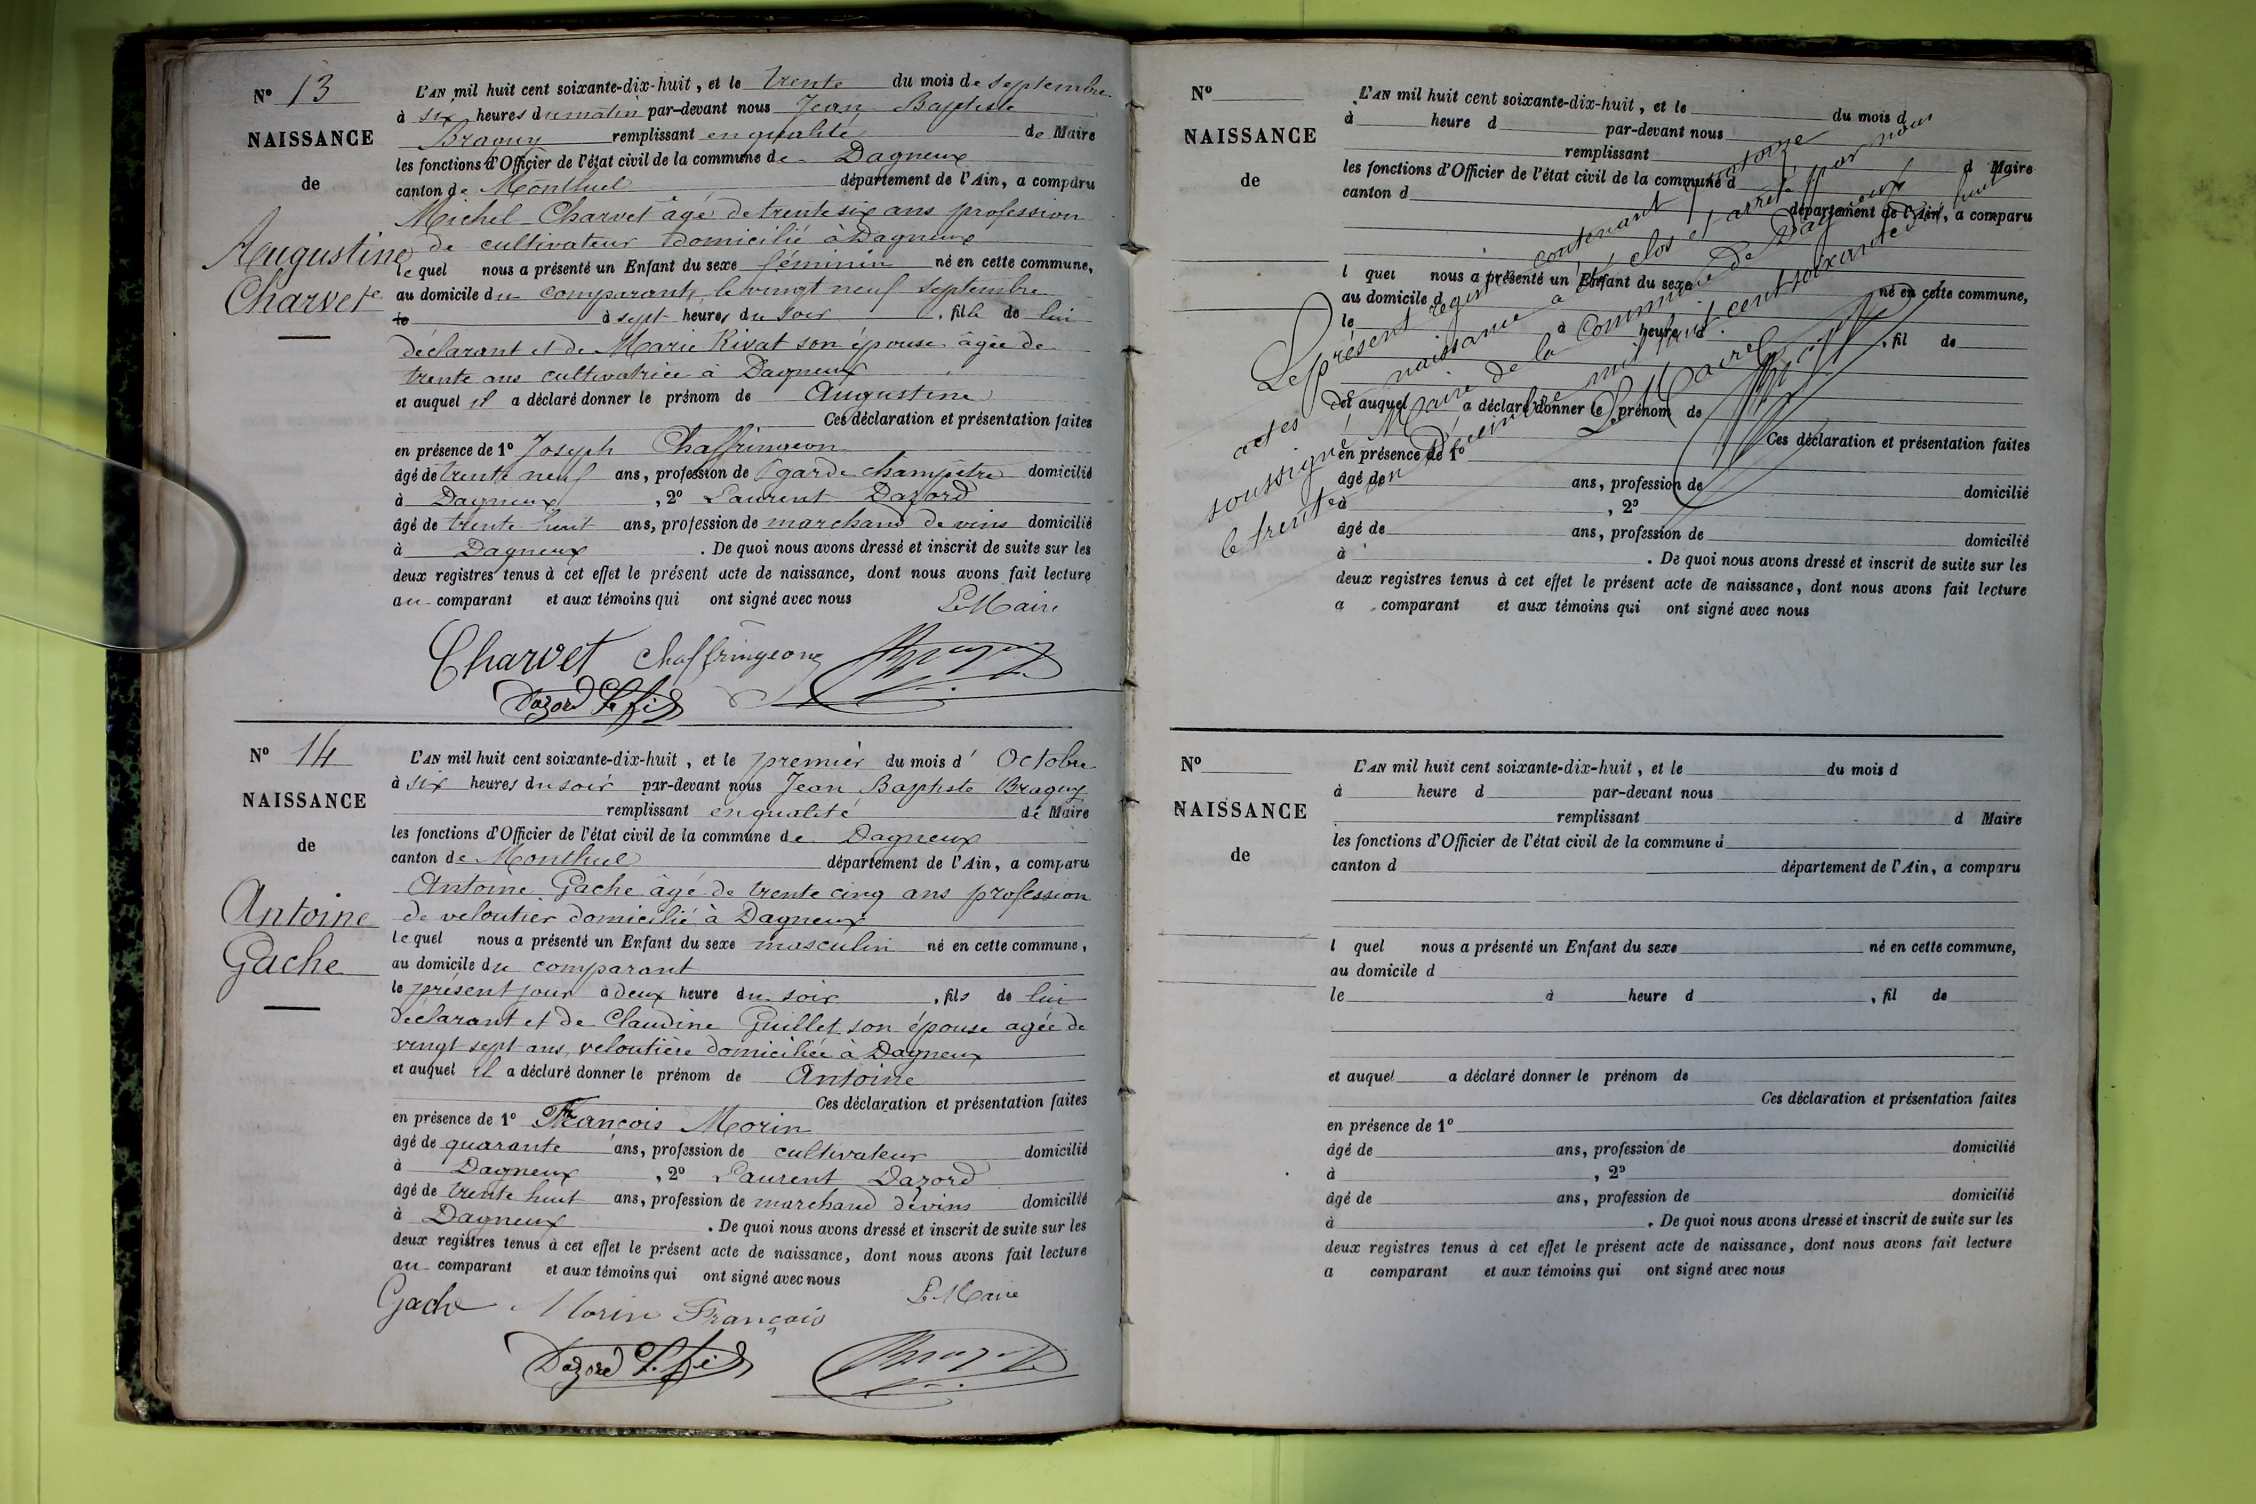 N° 13
NAISSANCE
de
Augustine
Charvet
L'AN mil huit cent soixante-dix-huit, et le trente du mois de septembre
à six heures du matin par-devant nous Jean Baptiste
Braguy remplissant en qualité de Maire
les fonctions d'Officier de l'état civil de la commune de Dagneux
canton de Montluel département de l'Ain, a comparu
Michel Charvet âgé de trente six ans profession
de cultivateur domicilié à Dagneux
lequel nous a présenté un Enfant du sexe féminin né en cette commune,
au domicile du comparant, le vingt neuf septembre
le à sept heures du soir, fille de lui
déclarant et de Marie Rivat son épouse âgée de
trente ans cultivatrice à Dagneux
et auquel il a déclaré donner le prénom de Augustine
Ces déclaration et présentation faites
en présence de 1° Joseph Chaffringeon
âgé de trente neuf ans, profession de garde champêtre domicilié
à Dagneux, 2° Laurent Dazord
âgé de trente huit ans, profession de marchand de vins domicilié
à Dagneux. De quoi nous avons dressé et inscrit de suite sur les
deux registres tenus à cet effet le présent acte de naissance, dont nous avons fait lecture
au comparant et aux témoins qui ont signé avec nous
Le Maire
Charvet Chaffringeon Braguy
Dazord L. fils
N° 14
NAISSANCE
de
Antoine
Gache
L'AN mil huit cent soixante-dix-huit, et le premier du mois d'Octobre
à six heures du soir par-devant nous Jean Baptiste Braguy
remplissant en qualité de Maire
les fonctions d'Officier de l'état civil de la commune de Dagneux
canton de Montluel département de l'Ain, a comparu
Antoine Gache âgé de trente cinq ans profession
de veloutier domicilié à Dagneux
lequel nous a présenté un Enfant du sexe masculin né en cette commune,
au domicile du comparant
le présent jour à deux heure du soir, fils de lui
déclarant et de Claudine Guillet son épouse agée de
vingt sept ans, veloutière domiciliée à Dagneux
et auquel il a déclaré donner le prénom de Antoine
Ces déclaration et présentation faites
en présence de 1° François Morin
âgé de quarante ans, profession de cultivateur domicilié
à Dagneux, 2° Laurent Dazord
âgé de trente huit ans, profession de marchand de vins domicilié
à Dagneux. De quoi nous avons dressé et inscrit de suite sur les
deux registres tenus à cet effet le présent acte de naissance, dont nous avons fait lecture
au comparant et aux témoins qui ont signé avec nous
Le Maire
Gache Morin François
Dazord L. fils Braguy
N°
NAISSANCE
de
L'AN mil huit cent soixante-dix-huit, et le du mois d
à heure d par-devant nous
remplissant d Maire
les fonctions d'Officier de l'état civil de la commune d
canton d département de l'Ain, a comparu
l quel nous a présenté un Enfant du sexe né en cette commune,
au domicile d
le à heure d, fil de
et auquel a déclaré donner le prénom de
Ces déclaration et présentation faites
en présence de 1°
âgé de ans, profession de domicilié
à, 2°
âgé de ans, profession de domicilié
à. De quoi nous avons dressé et inscrit de suite sur les
deux registres tenus à cet effet le présent acte de naissance, dont nous avons fait lecture
a comparant et aux témoins qui ont signé avec nous
Le présent registre contenant quatorze
actes de naissance a été clos et arrêté par nous
soussigné Maire de la Commune de Dagneux
le trente un Décembre mil huit cent soixante dix huit
Le Maire
N°
NAISSANCE
de
L'AN mil huit cent soixante-dix-huit, et le du mois d
à heure d par-devant nous
remplissant d Maire
les fonctions d'Officier de l'état civil de la commune d
canton d département de l'Ain, a comparu
l quel nous a présenté un Enfant du sexe né en cette commune,
au domicile d
le à heure d, fil de
et auquel a déclaré donner le prénom de
Ces déclaration et présentation faites
en présence de 1°
âgé de ans, profession de domicilié
à, 2°
âgé de ans, profession de domicilié
à. De quoi nous avons dressé et inscrit de suite sur les
deux registres tenus à cet effet le présent acte de naissance, dont nous avons fait lecture
a comparant et aux témoins qui ont signé avec nous